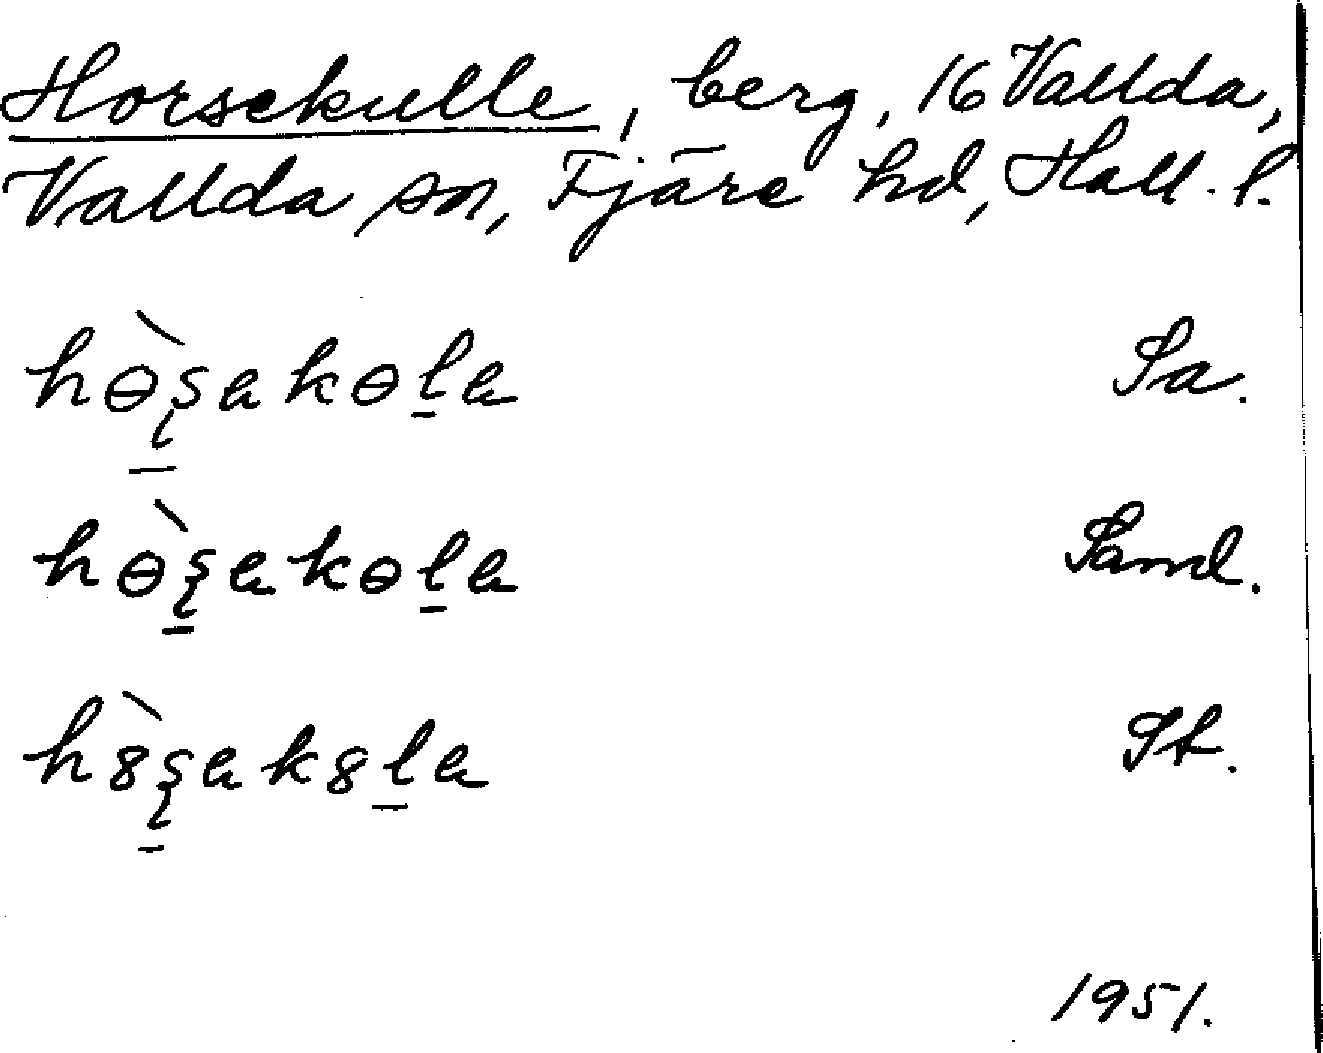 Horsekulle, berg, 16 Vallda,
Vallda sn, Fjäre hd, Hall. l.
hɵ̀ʂ̱akɵḻa Sa.
hɵ̀ʂ̱akɵḻa Sand.
h8̀ʂ̱ak8ḻa St.
1951.